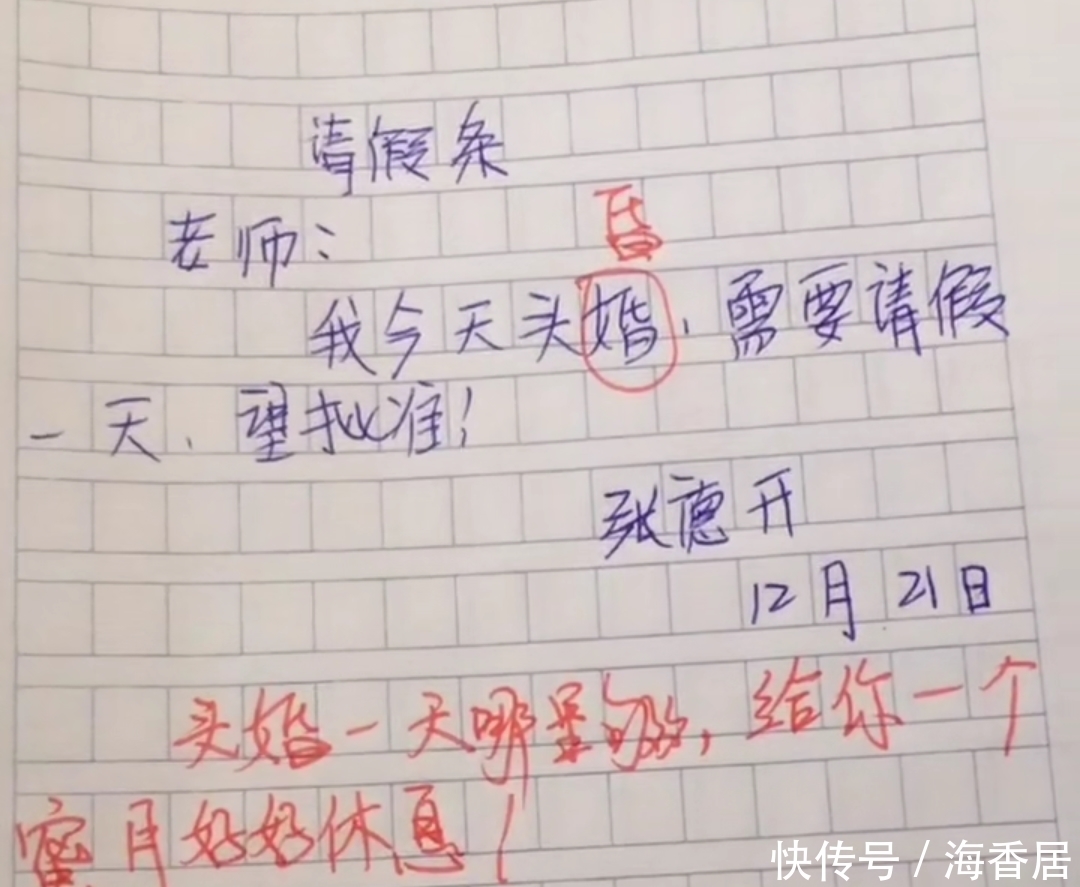 请假条
老师：
昏
我今天头婚，需要请假
一天，望批准！
张德开
12月21日
头婚一天哪里够，给你一个
蜜月好好休息！
快传号 / 海香居